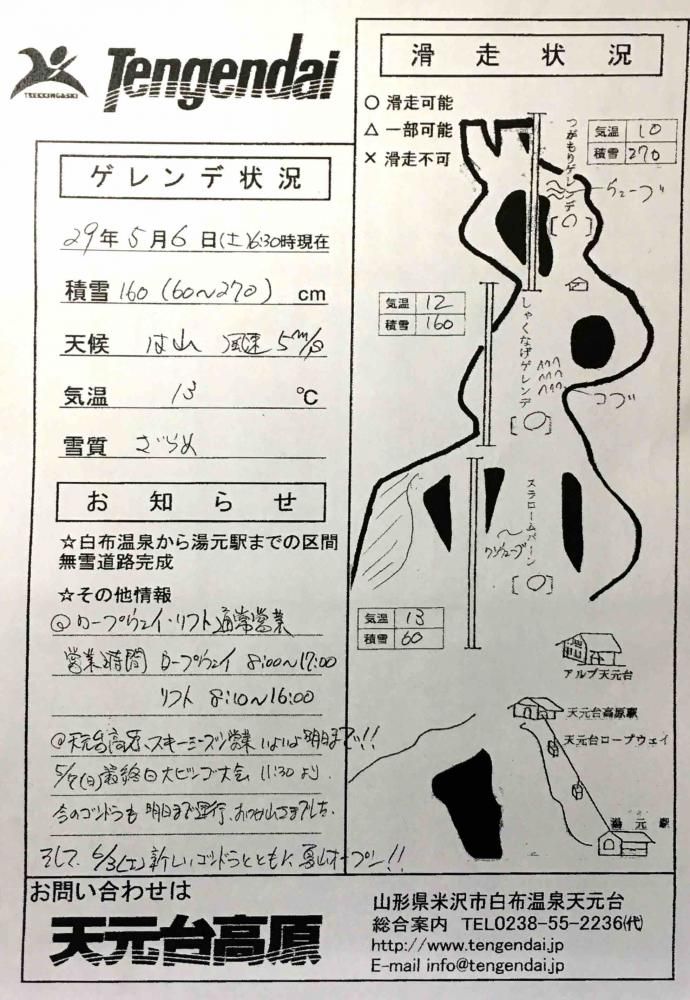 TREKKING&SKI
Tengendai
ゲレンデ状況
29年5月6日(土)6:30時現在
積雪 160 (60〜270) cm
天候 はれ 風速 5m/s
気温 13 ℃
雪質 ざらめ
お知らせ
☆白布温泉から湯元駅までの区間
無雪道路完成
☆その他情報
◎ロープウェイ・リフト通常営業
営業時間 ロープウェイ 8:00〜17:00
リフト 8:10〜16:00
◎天元台高原スキーシーズン営業いよいよ明日まで!!
5/7(日)最終日大ビンゴ大会 11:30より.
今のゴンドラも明日まで運行.おつかれさまでした.
そして. 6/3(土)新しいゴンドラとともに夏山オープン!!
滑走状況
○ 滑走可能
△ 一部可能
× 滑走不可
つがもりゲレンデ
[○]
気温 10
積雪 270
チューブ
気温 12
積雪 160
しゃくなげゲレンデ
[○]
コブ
スラロームバーン
[○]
気温 13
積雪 60
アルブ天元台
天元台高原駅
天元台ロープウェイ
湯元駅
お問い合わせは
天元台高原
山形県米沢市白布温泉天元台
総合案内 TEL0238-55-2236(代)
http://www.tengendai.jp
E-mail info@tengendai.jp